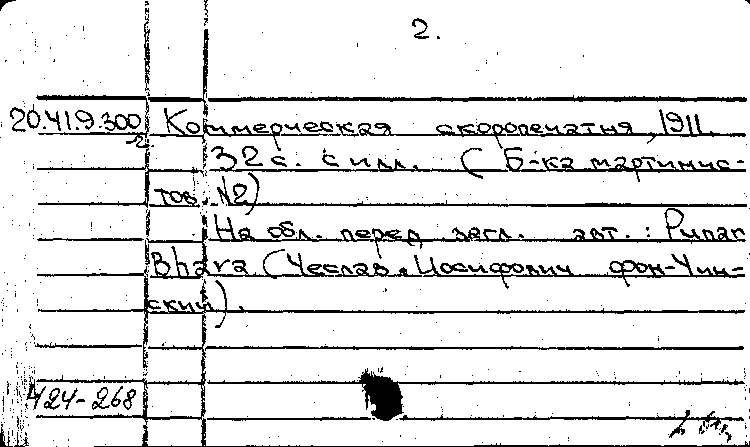 2.
20.41.9.300 Коммерческая скоропечатня, 1911.
32 с. с илл. (Б-ка мартинис-
тов. №2)
На обл. перед загл. авт.: Punar
Bhava (Чеслав Иосифович фон-Чин-
ский).
424-268